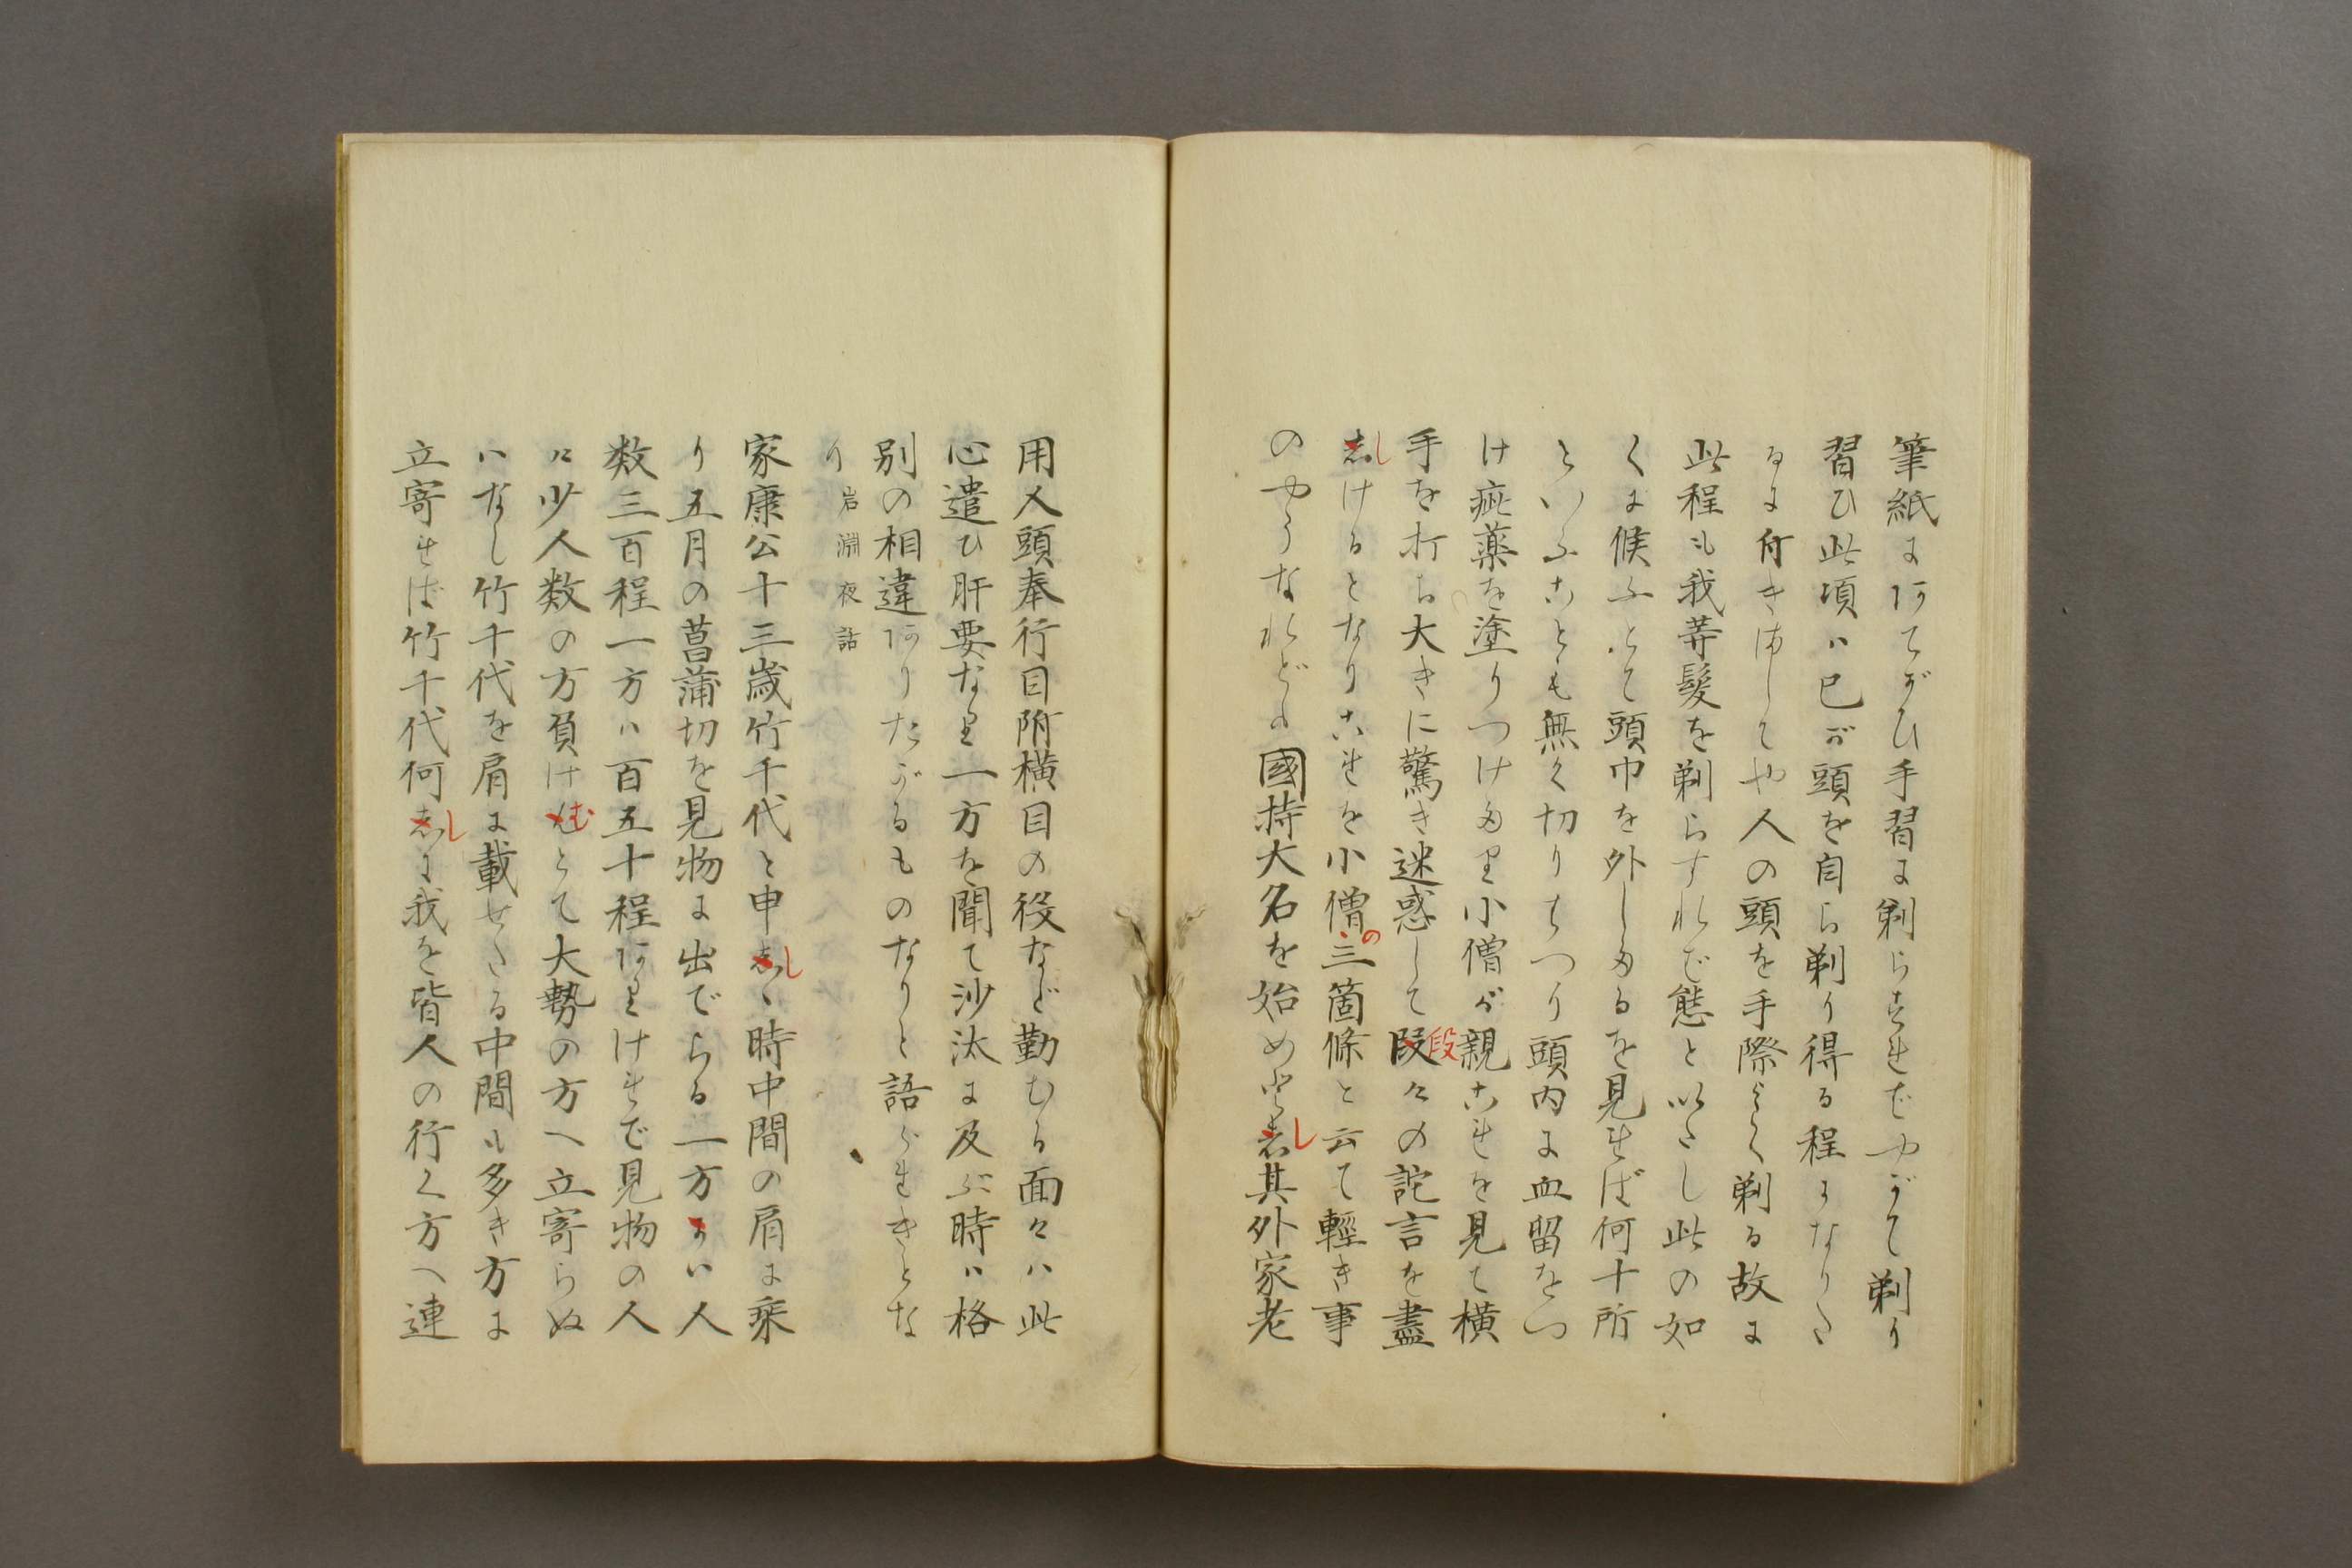 筆紙にあてがひ手習に剃らされでやがて剃り
習ひ此頃ハ已が頭を自ら剃り得る程になりた
るに付きましてや人の頭を手際よく剃る故に
此程も我等髪を剃らすれで態と以たし此の如
くに候ふとて頭巾を外したるを見せば何十所
といふことも無く切りちつり頭内に血留をつ
け疵薬を塗りつけたり小僧が親これを見て横
手を打ち大きに驚き迷惑して段々の詫言を盡
しけるとなりこれを小僧の三箇條と云て輕き事
のやうなれどの國持大名を始めとし其外家老
用人頭奉行目附横目の役など勤むる面々ハ此
心遣ひ肝要なり一方を聞て沙汰に及ぶ時ハ格
別の相違ありたがるものなりと語られきとな
り 岩淵夜話
家康公十三歳竹千代と申しゝ時中間の肩に乘
り五月の菖蒲切を見物に出でらる一方ハ人
数三百程一方ハ百五十程ありけれで見物の人
々少人数の方負けむとて大勢の方へ立寄らぬ
ハなし竹千代を肩に載せたる中間も多き方に
立寄せば竹千代何しに我を皆人の行く方へ連